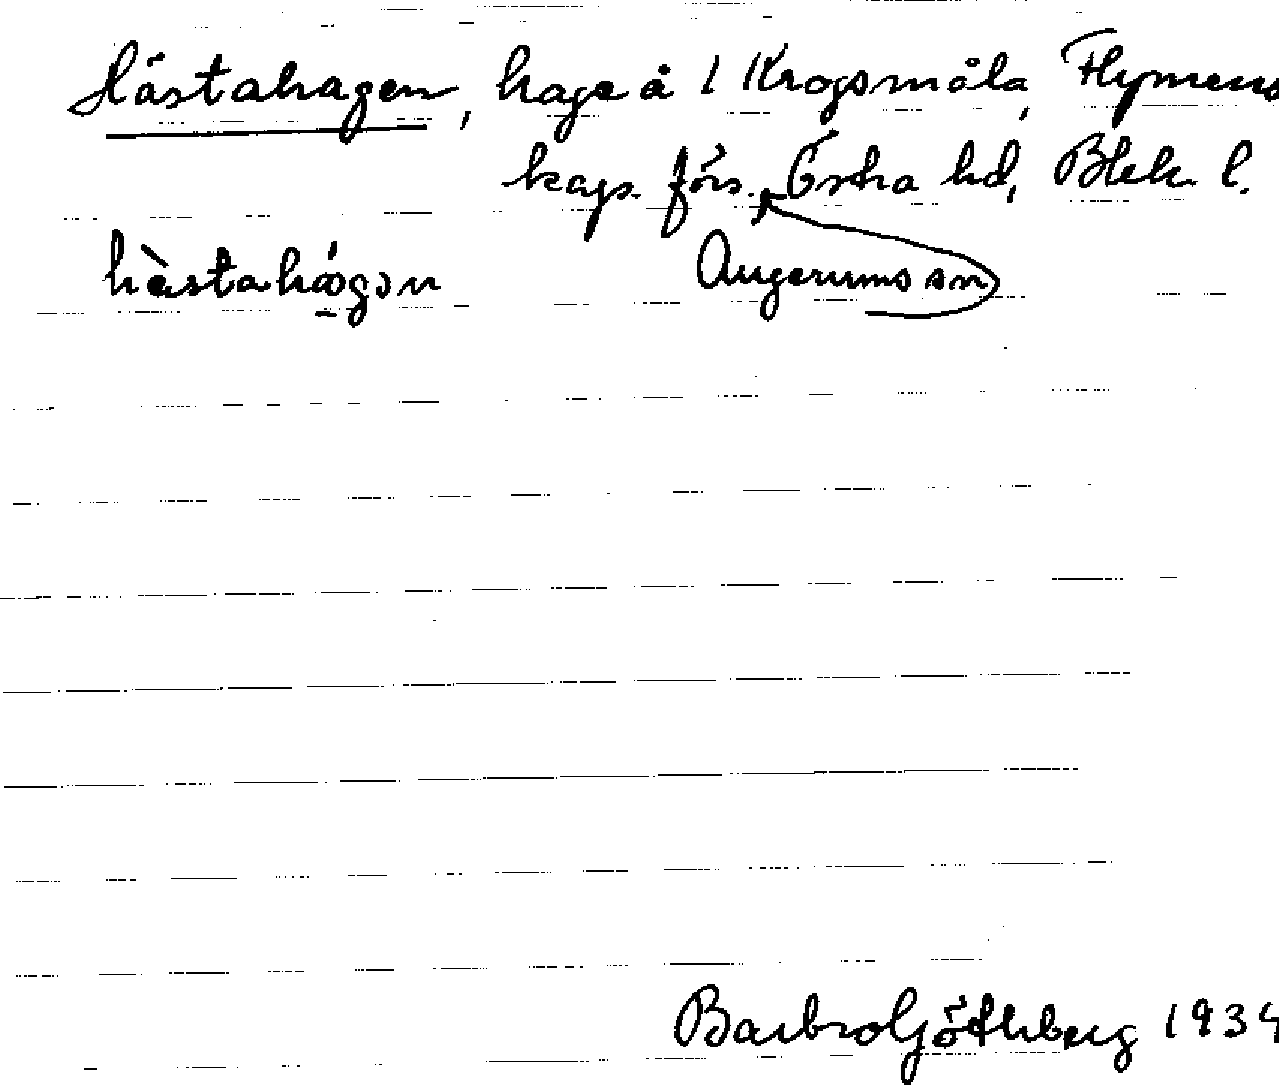 Hästahagen, hage å 1 Krogsmåla, Flymens
kaps. förs., Östra hd, Blek. l.
hästahagən Augerums sn
Barbro Götherberg 1934